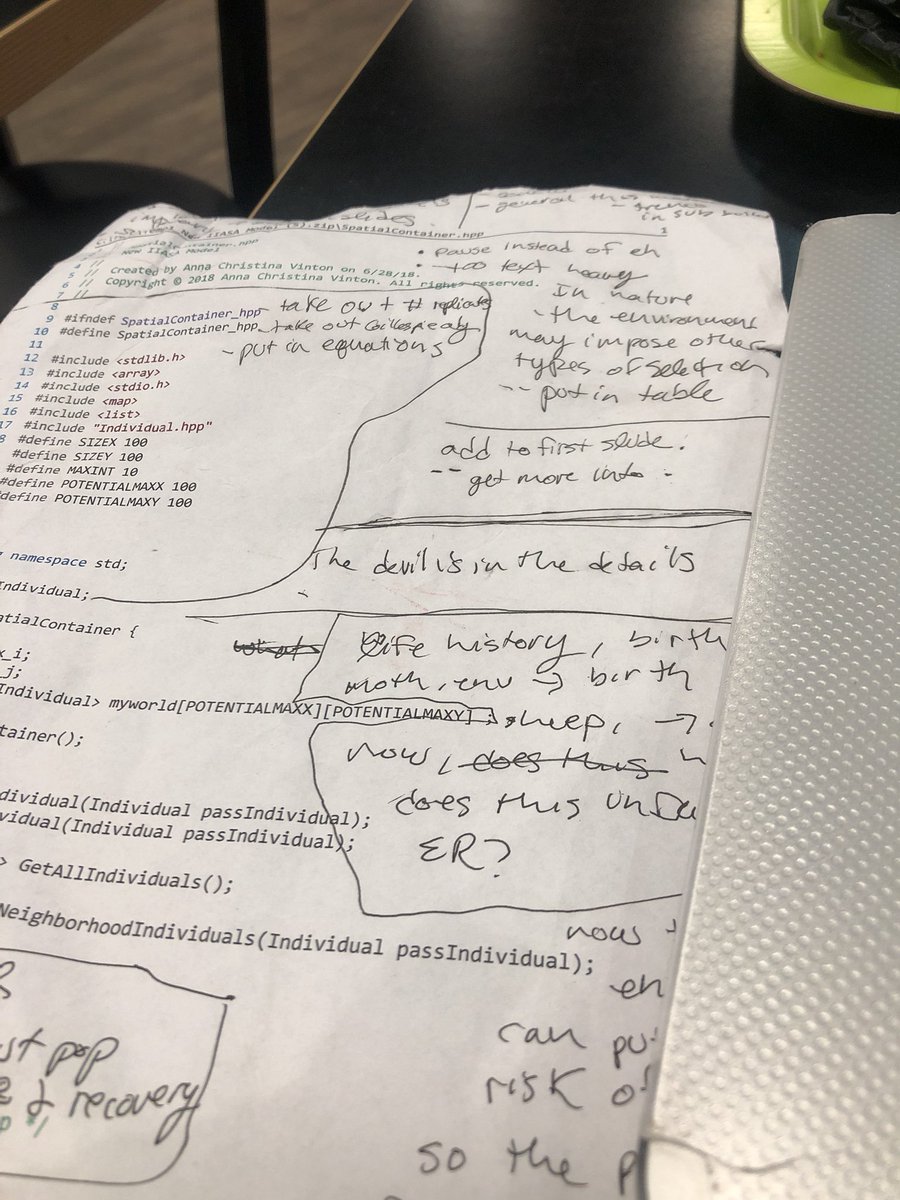 slides
- general this
in sub
New IIASA Model (s).zip\SpatialContainer.hpp 1
• pause instead of eh
New IIASA Model
• - too text heavy
4 //
5 // Created by Anna Christina Vinton on 6/28/18.
6 // Copyright © 2018 Anna Christina Vinton. All rights reserved.
7 //
In nature
8
- take out # replicates
9 #ifndef SpatialContainer_hpp
- the environment
10 #define SpatialContainer_hpp
- take out
may impose other
11
- put in equations
types of selection
12 #include <stdlib.h>
13 #include <array>
-- put in table
14 #include <stdio.h>
15 #include <map>
16 #include <list>
17 #include "Individual.hpp"
add to first slide:
8 #define SIZEX 100
#define SIZEY 100
-- get more into -
#define MAXINT 10
#define POTENTIALMAXX 100
#define POTENTIALMAXY 100
namespace std;
The devil is in the details
Individual;
atialContainer {
Life history, birth
x_i;
_j;
env → birth
Individual> myworld[POTENTIALMAXX][POTENTIALMAXY];
sheep, →
tainer();
now, does this
does this
ER?
dividual(Individual passIndividual);
vidual(Individual passIndividual);
> GetAllIndividuals();
NeighborhoodIndividuals(Individual passIndividual);
now
en
can pu
risk of
st pop
& recovery
p */
so the p